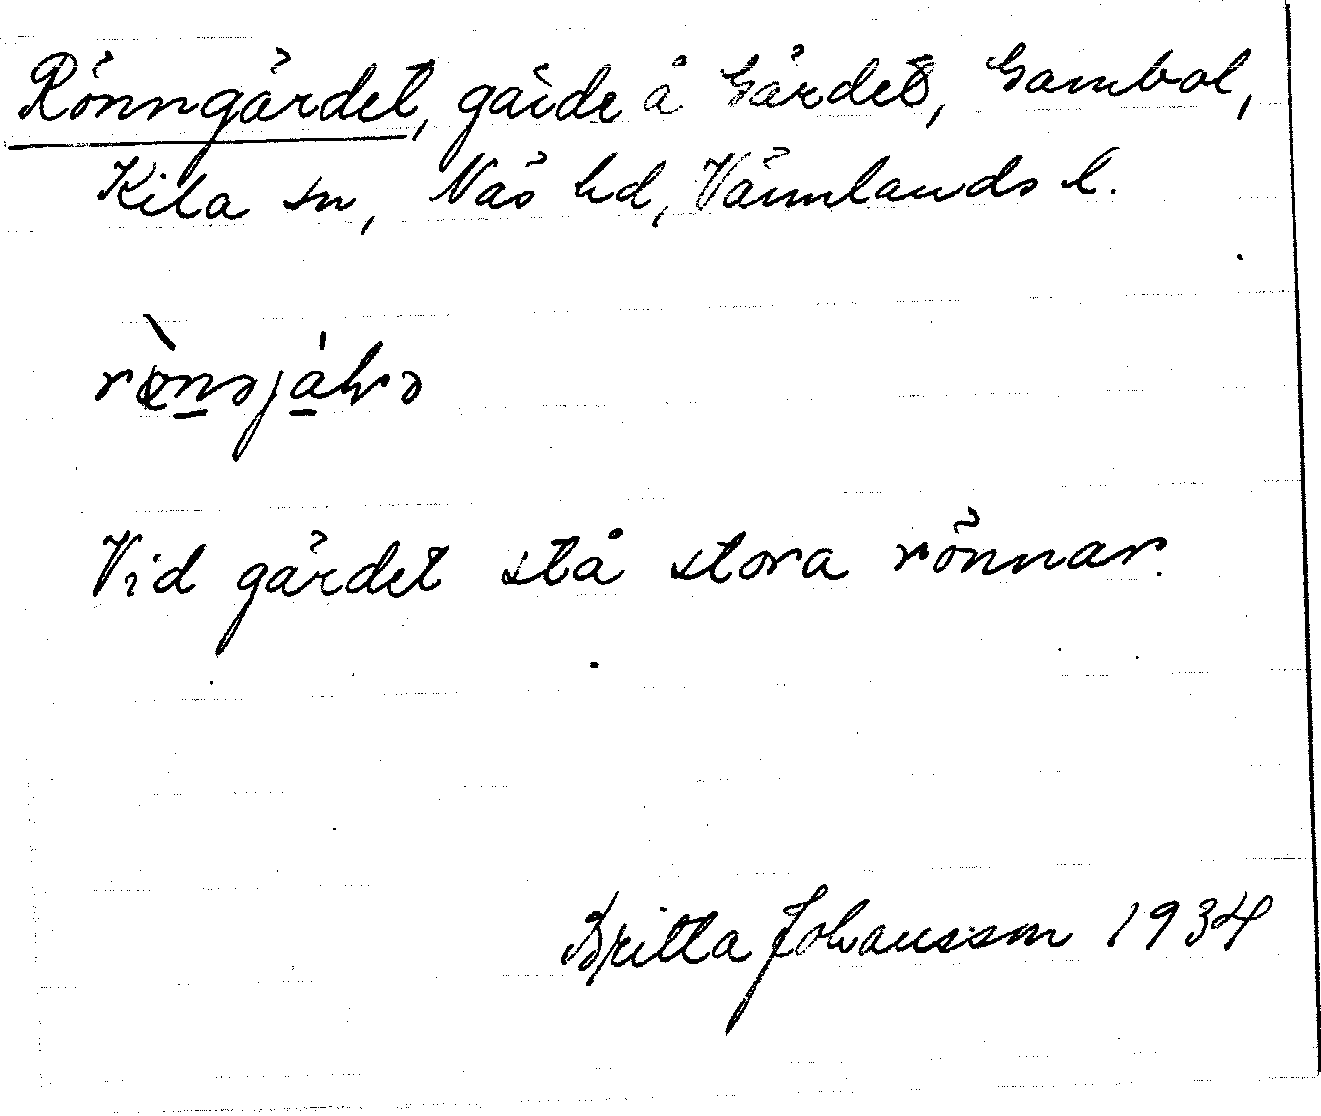 Rönngärdet, gärde å Gärdet, Gambol,
Kila sn, Näs hd, Värmlands l.
Vid gärdet stå stora rönnar.
Britta Johansson 1934